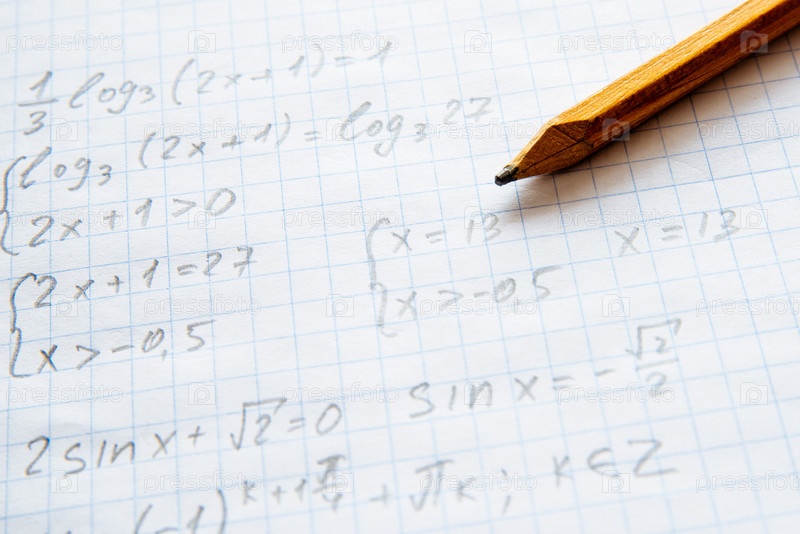 1/3 log₃ (2x+1) = 1
{ log₃ (2x+1) = log₃ 27
{ 2x+1>0
{ 2x+1=27
{ x>-0,5
{ x = 13
{ x>-0,5
x = 13
2sinx+√2=0
sin x = - √2/2
(-1)^(k+1) π/4 + πk; k∈Z
pressfoto